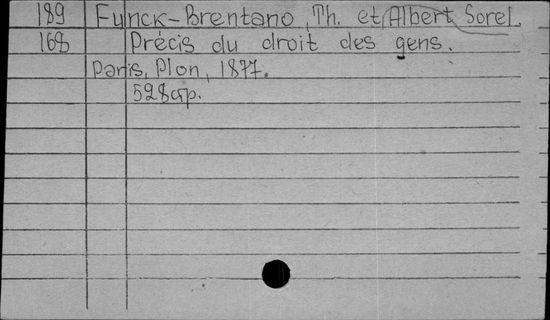 189 Funck-Brentano, Th. et Albert Sorel.
168 Précis du droit des gens.
Paris, Plon, 1877.
528 стр.